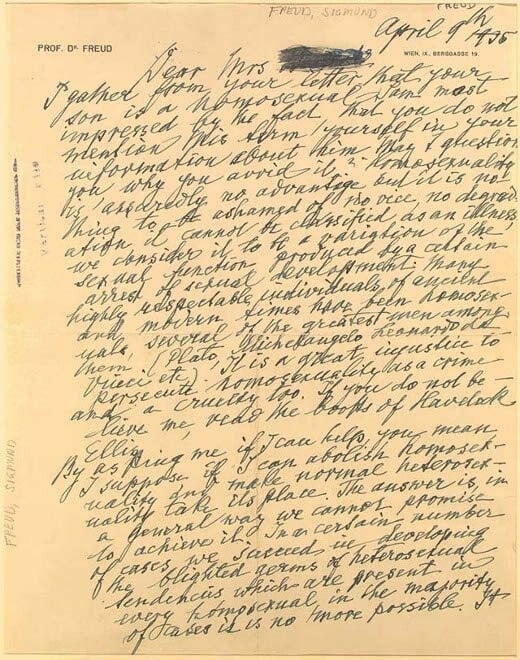 FREUD, SIGMUND
FREUD
April 9th 1935
PROF. DR. FREUD
WIEN, IX., BERGGASSE 19.
Dear Mrs
I gather from your letter that your
son is a homosexual. I am most
impressed by the fact that you do not
mention this term yourself in your
information about him. May I question
you why you avoid it? Homosexuality
is assuredly no advantage but it is no-
thing to be ashamed of, no vice, no degrad-
ation, it cannot be classified as an illness;
we consider it to be a variation of the
sexual function produced by a certain
arrest of sexual development. Many
highly respectable individuals of ancient
and modern times have been homosex-
uals, several of the greatest men among
them. (Plato, Michelangelo, Leonardo da
Vinci etc). It is a great injustice to
persecute homosexuality as a crime
and a cruelty too. If you do not be-
lieve me, read the books of Havelock
Ellis.
By asking me if I can help, you mean
I suppose if I can abolish homosex-
uality and make normal heterosex-
uality take its place. The answer is, in
a general way we cannot promise
to achieve it. In a certain number
of cases we succeed in developing
the blighted germs of heterosexual
tendencies which are present in
every homosexual, in the majority
of cases it is no more possible. It
FREUD, SIGMUND